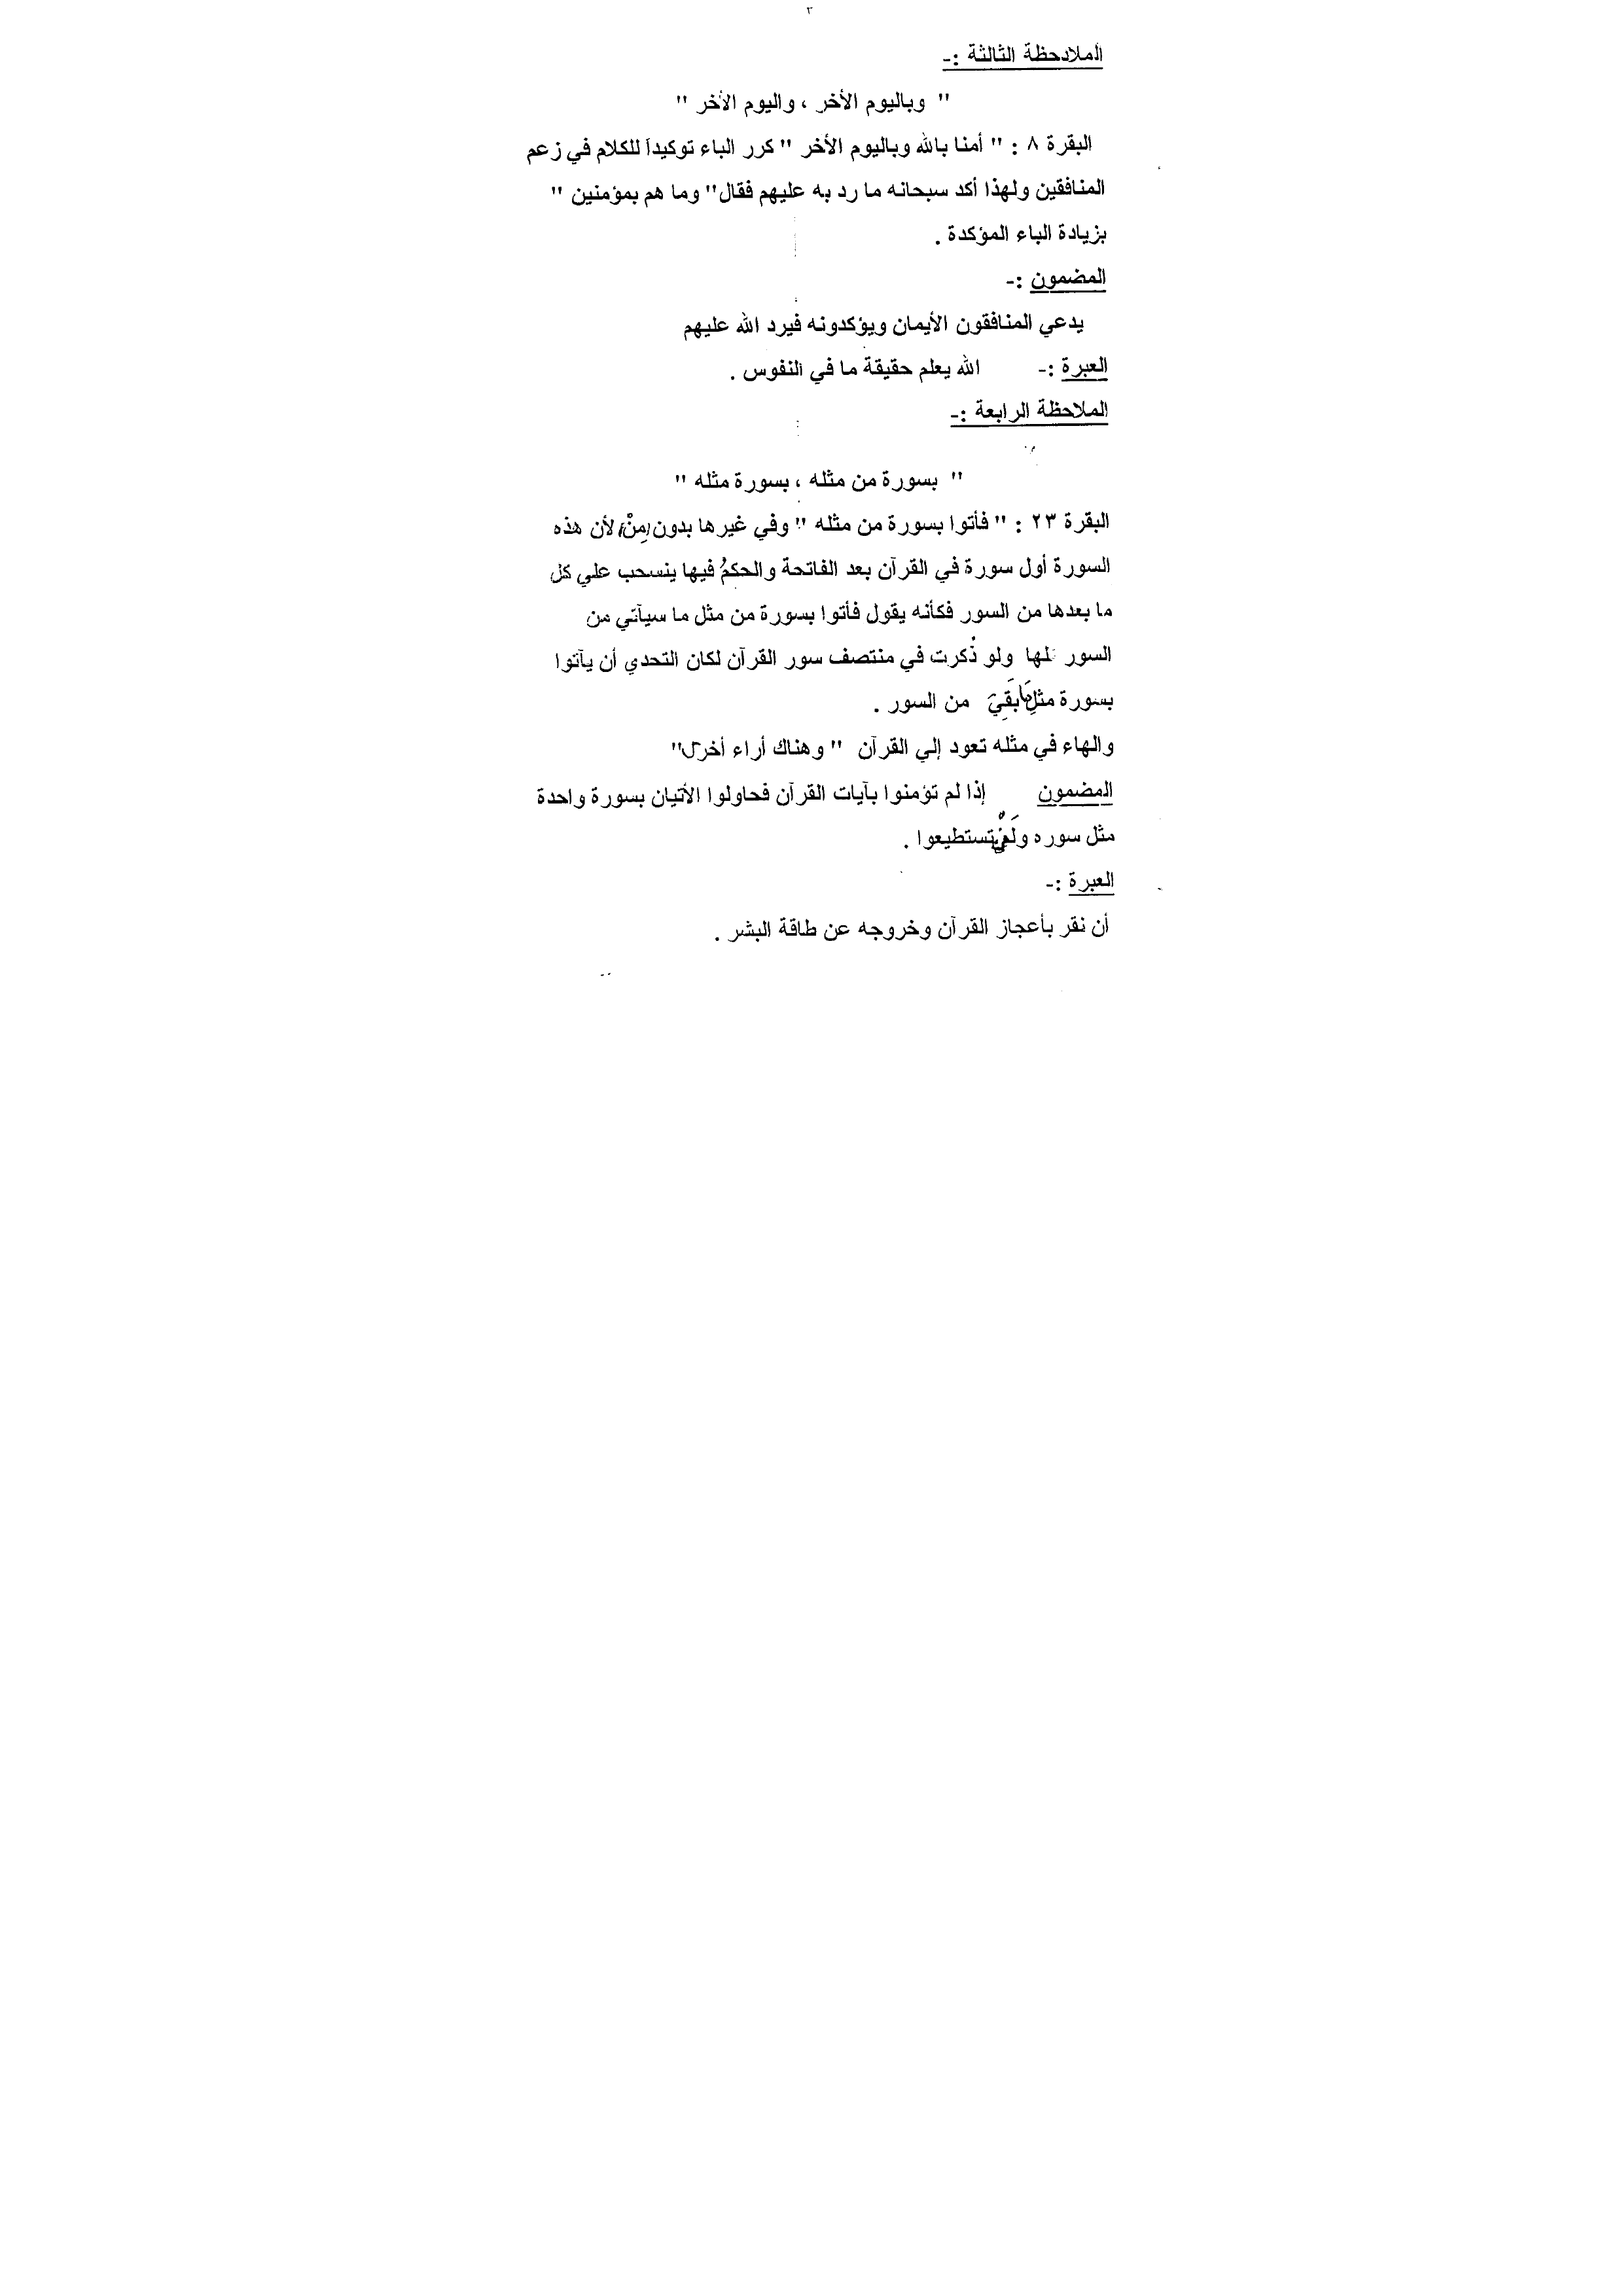 ٣
الملاحظة الثالثة :-
" وباليوم الأخر ، واليوم الأخر "
البقرة ٨ : " أمنا بالله وباليوم الأخر " كرر الباء توكيداً للكلام في زعم
المنافقين ولهذا أكد سبحانه ما رد به عليهم فقال" وما هم بمؤمنين "
بزيادة الباء المؤكدة .
المضمون :-
يدعي المنافقون الأيمان ويؤكدونه فيرد الله عليهم
العبرة :- الله يعلم حقيقة ما في النفوس .
الملاحظة الرابعة :-
" بسورة من مثله ، بسورة مثله "
البقرة ٢٣ : " فأتوا بسورة من مثله " وفي غيرها بدون (مِنْ) لأن هذه
السورة أول سورة في القرآن بعد الفاتحة والحكمُ فيها ينسحب علي كل
ما بعدها من السور فكأنه يقول فأتوا بسورة من مثل ما سيآتي من
السور ولو ذُكرت في منتصف سور القرآن لكان التحدي أن يآتوا
بسورة مثلِ من السور .
والهاء في مثله تعود إلي القرآن " وهناك أراء أخرى"
المضمون إذا لم تؤمنوا بآيات القرآن فحاولوا الأتيان بسورة واحدة
مثل سوره ولَنْ تستطيعوا .
العبرة :-
أن نقر بأعجاز القرآن وخروجه عن طاقة البشر .